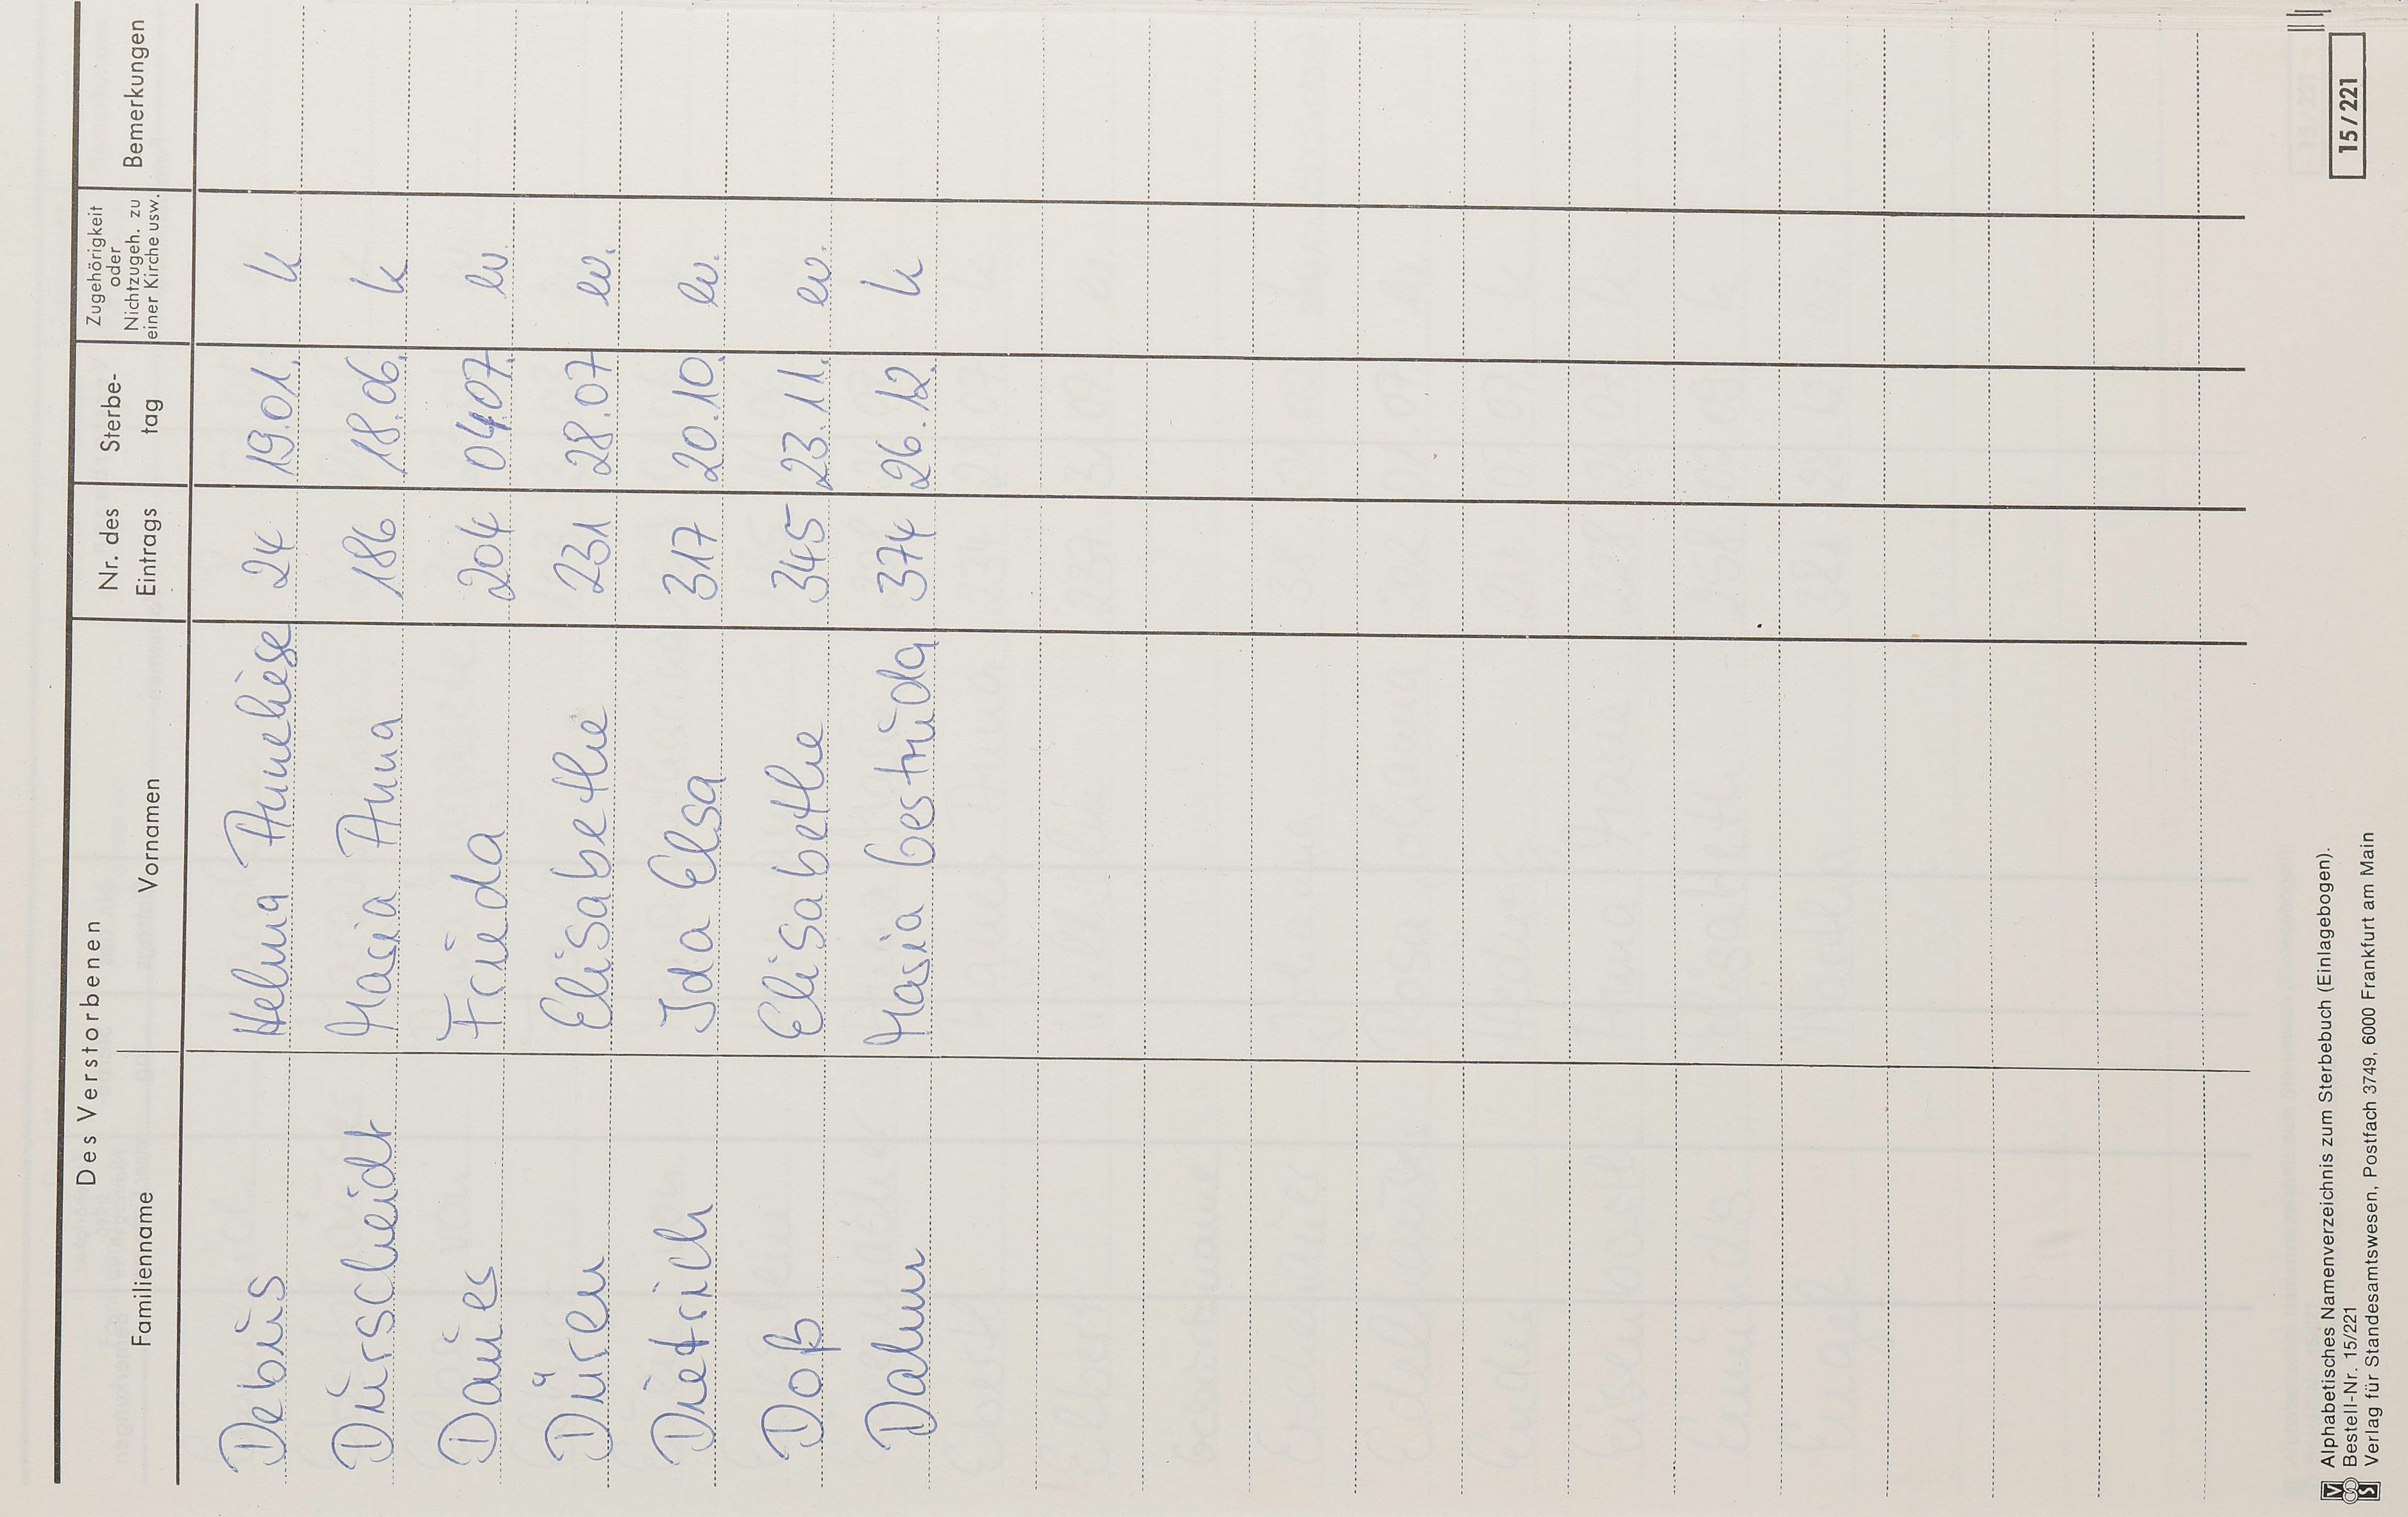 Des Verstorbenen
Familienname Vornamen
Nr. des Eintrags
Sterbe-tag
Zugehörigkeit oder Nichtzugeh. zu einer Kirche usw.
Bemerkungen
Debus Helma Anneliese 24 19.01. k
Dürscheidt Maria Anna 186 18.06. k
Frieda 204 04.07. ev.
Düren Elisabethe 231 28.07 ev.
Dietrich Ida Elsa 317 20.10. ev.
Doß Elisabethe 345 23.11. ev.
Dahm Maria Gertruda 374 26.12. k
15/221
Alphabetisches Namenverzeichnis zum Sterbebuch (Einlagebogen).
Bestell-Nr. 15/221
Verlag für Standesamtswesen, Postfach 3749, 6000 Frankfurt am Main